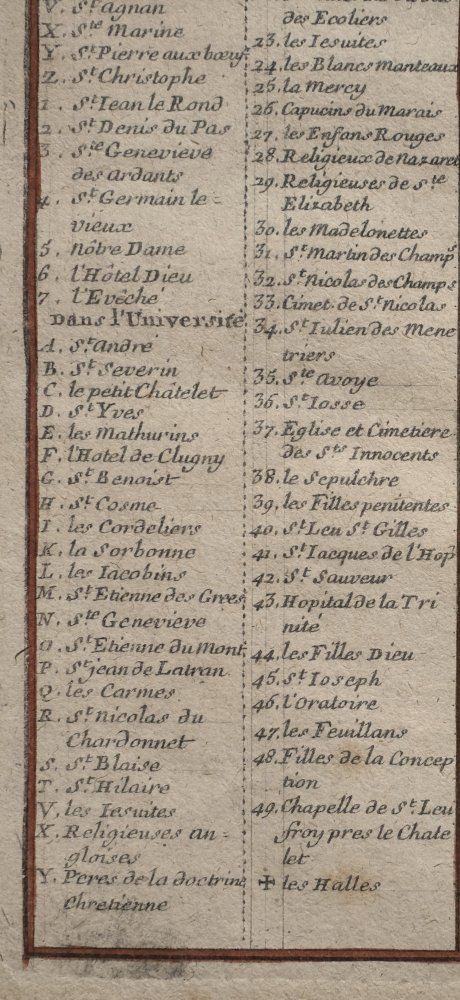 V. St. Agnan
X. Ste Marine
Y. St. Pierre aux bœufs
Z. St. Christophe
1. St. Iean le Rond
2. St. Denis du Pas
3. Ste Genevieve
des ardants
4. St. Germain le=
vieux
5. nôtre Dame
6. l'Hôtel Dieu
7. l'Evêché
Dans l'Université
A. St. André
B. St. Severin
C. le petit Châtelet
D. St. Yves
E. les Mathurins
F. l'Hotel de Clugny
G. St. Benoist
H. St. Cosme
I. les Cordeliers
K. la Sorbonne
L. les Iacobins
M. St. Etienne des Grees
N. Ste Genevieve
O. St. Etienne du Mont
P. St. jean de Latran
Q. les Carmes
R. St. nicolas du
Chardonnet
S. St. Blaise
T. St. Hilaire
V. les Iesuites
X. Religieuses an=
gloises
Y. Peres de la doctrine
Chretienne
des Ecoliers
23. les Iesuites
24. les Blancs manteaux
25. la Mercy
26. Capucins du Marais
27. les Enfans Rouges
28. Religieux de nazaret
29. Religieuses de Ste
Elizabeth
30. les Madelonettes
31. St. Martin des Champs
32. St. Nicolas des Champs
33. Cimet. de St. Nicolas
34. St. Iulien des Mene
triers
35. Ste avoye
36. St. Iosse
37. Eglise et Cimetiere
des Sts Innocents
38. le Sepulchre
39. les Filles penitentes
40. St. Leu St. Gilles
41. St. Iacques de l'Hop
42. St. Sauveur
43. Hopital de la Tri
nité
44. les Filles Dieu
45. St. Ioseph
46. l'Oratoire
47. les Feuillans
48. Filles de la Concep
tion
49. Chapelle de St. Leu
froy pres le Chate
let
✠ les Halles